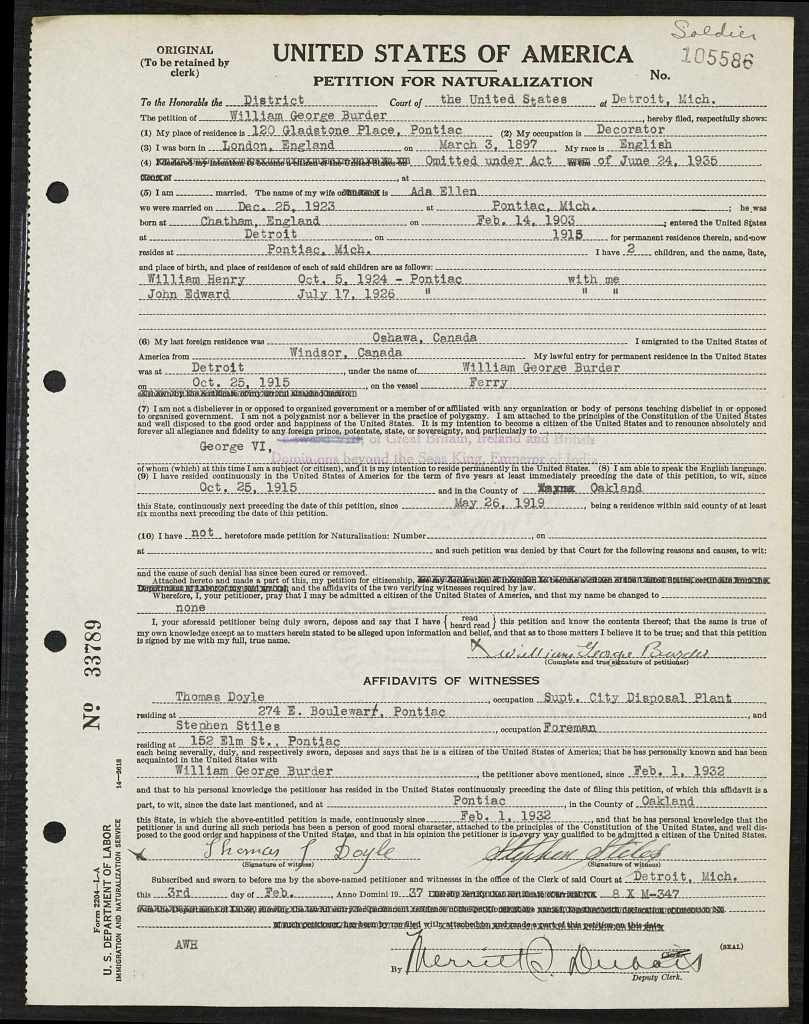 Soldier
ORIGINAL
(To be retained by
clerk)
UNITED STATES OF AMERICA
PETITION FOR NATURALIZATION
No. 105586
To the Honorable the District Court of the United States at Detroit, Mich.
The petition of William George Burder, hereby filed, respectfully shows:
(1) My place of residence is 120 Gladstone Place, Pontiac (2) My occupation is Decorator
(3) I was born in London, England on March 3, 1897 My race is English
(4) Omitted under Act of June 24, 1935
, at
(5) I am married. The name of my wife is Ada Ellen
we were married on Dec. 25, 1923 at Pontiac, Mich. ; he was
born at Chatham, England on Feb. 14, 1903 ; entered the United States
at Detroit on 1915 for permanent residence therein, and now
resides at Pontiac, Mich. I have 2 children, and the name, date,
and place of birth, and place of residence of each of said children are as follows:
William Henry Oct. 5, 1924 - Pontiac with me
John Edward July 17, 1926 " " "
(6) My last foreign residence was Oshawa, Canada I emigrated to the United States of
America from Windsor, Canada My lawful entry for permanent residence in the United States
was at Detroit, under the name of William George Burder
on Oct. 25, 1915, on the vessel Ferry
(7) I am not a disbeliever in or opposed to organized government or a member of or affiliated with any organization or body of persons teaching disbelief in or opposed
to organized government. I am not a polygamist nor a believer in the practice of polygamy. I am attached to the principles of the Constitution of the United States
and well disposed to the good order and happiness of the United States. It is my intention to become a citizen of the United States and to renounce absolutely and
forever all allegiance and fidelity to any foreign prince, potentate, state, or sovereignty, and particularly to
George VI, of Great Britain, Ireland and British
Dominions beyond the Seas King, Emperor of India
of whom (which) at this time I am a subject (or citizen), and it is my intention to reside permanently in the United States. (8) I am able to speak the English language.
(9) I have resided continuously in the United States of America for the term of five years at least immediately preceding the date of this petition, to wit, since
Oct. 25, 1915 and in the County of Wayne Oakland
this State, continuously next preceding the date of this petition, since May 26, 1919, being a residence within said county of at least
six months next preceding the date of this petition.
(10) I have not heretofore made petition for Naturalization: Number , on
at and such petition was denied by that Court for the following reasons and causes, to wit:
and the cause of such denial has since been cured or removed.
Attached hereto and made a part of this, my petition for citizenship,
and the affidavits of the two verifying witnesses required by law.
Wherefore, I, your petitioner, pray that I may be admitted a citizen of the United States of America, and that my name be changed to
none
I, your aforesaid petitioner being duly sworn, depose and say that I have {read heard read} this petition and know the contents thereof; that the same is true of
my own knowledge except as to matters herein stated to be alleged upon information and belief, and that as to those matters I believe it to be true; and that this petition
is signed by me with my full, true name.
x William George Burder
(Complete and true signature of petitioner)
AFFIDAVITS OF WITNESSES
Thomas Doyle, occupation Supt. City Disposal Plant
residing at 274 E. Boulewart, Pontiac, and
Stephen Stiles, occupation Foreman
residing at 152 Elm St., Pontiac
each being severally, duly, and respectively sworn, deposes and says that he is a citizen of the United States of America; that he has personally known and has been
acquainted in the United States with
William George Burder, the petitioner above mentioned, since Feb. 1, 1932
and that to his personal knowledge the petitioner has resided in the United States continuously preceding the date of filing this petition, of which this affidavit is a
part, to wit, since the date last mentioned, and at Pontiac, in the County of Oakland
this State, in which the above-entitled petition is made, continuously since Feb. 1, 1932, and that he has personal knowledge that the
petitioner is and during all such periods has been a person of good moral character, attached to the principles of the Constitution of the United States, and well dis-
posed to the good order and happiness of the United States, and that in his opinion the petitioner is in every way qualified to be admitted a citizen of the United States.
x Thomas J Doyle Stephen Stiles
(Signature of witness) (Signature of witness)
Subscribed and sworn to before me by the above-named petitioner and witnesses in the office of the Clerk of said Court at Detroit, Mich.
this 3rd day of Feb., Anno Domini 19 37 8 X M-347
AWH
Clerk.
(SEAL)
By Merritt J. Dubois
Deputy Clerk.
No 33789
Form 2204—L-A
U. S. DEPARTMENT OF LABOR
IMMIGRATION AND NATURALIZATION SERVICE
14—2618